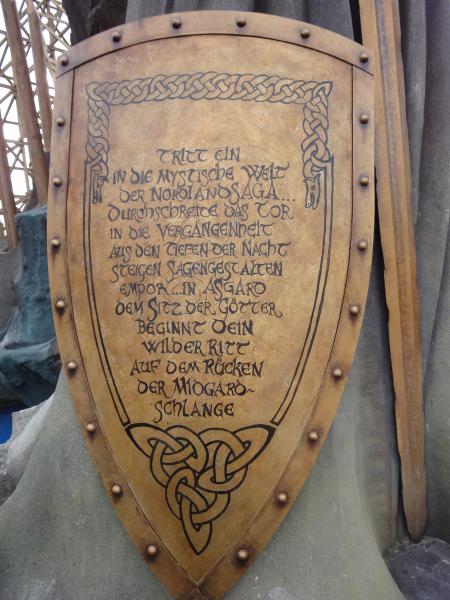 TRITT EIN
IN DIE MYSTISCHE WELT
DER NORDLANDSAGA...
DURCHSCHREITE DAS TOR
IN DIE VERGANGENHEIT
AUS DEN TIEFEN DER NACHT
STEIGEN SAGENGESTALTEN
EMPOR...IN ASGARD
DEM SITZ DER GÖTTER
BEGINNT DEIN
WILDER RITT
AUF DEM RÜCKEN
DER MIDGARD~
SCHLANGE